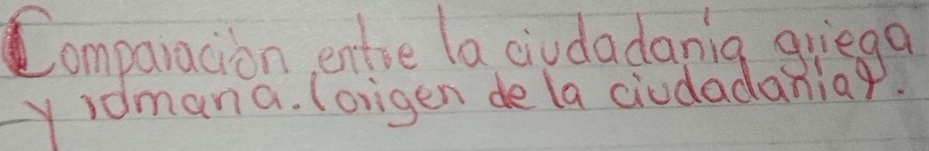 Comparación entre la ciudadanía griega
y romana. (origen de la ciudadanía).